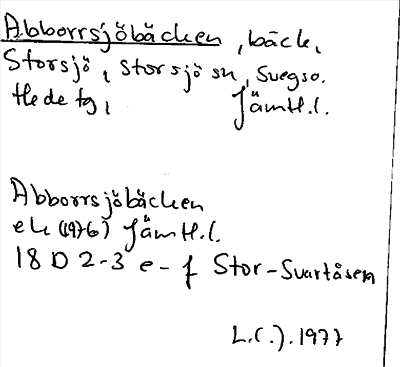 Abborrsjöbäcken, bäck,
Storsjö, Storsjö sn, Svegs o.
Hede tg, Jämtl.l.
Abborrsjöbäcken
ek (1976) Jämtl.l.
18 D 2-3 e-f Stor-Svartåsen
L.C.J. 1977